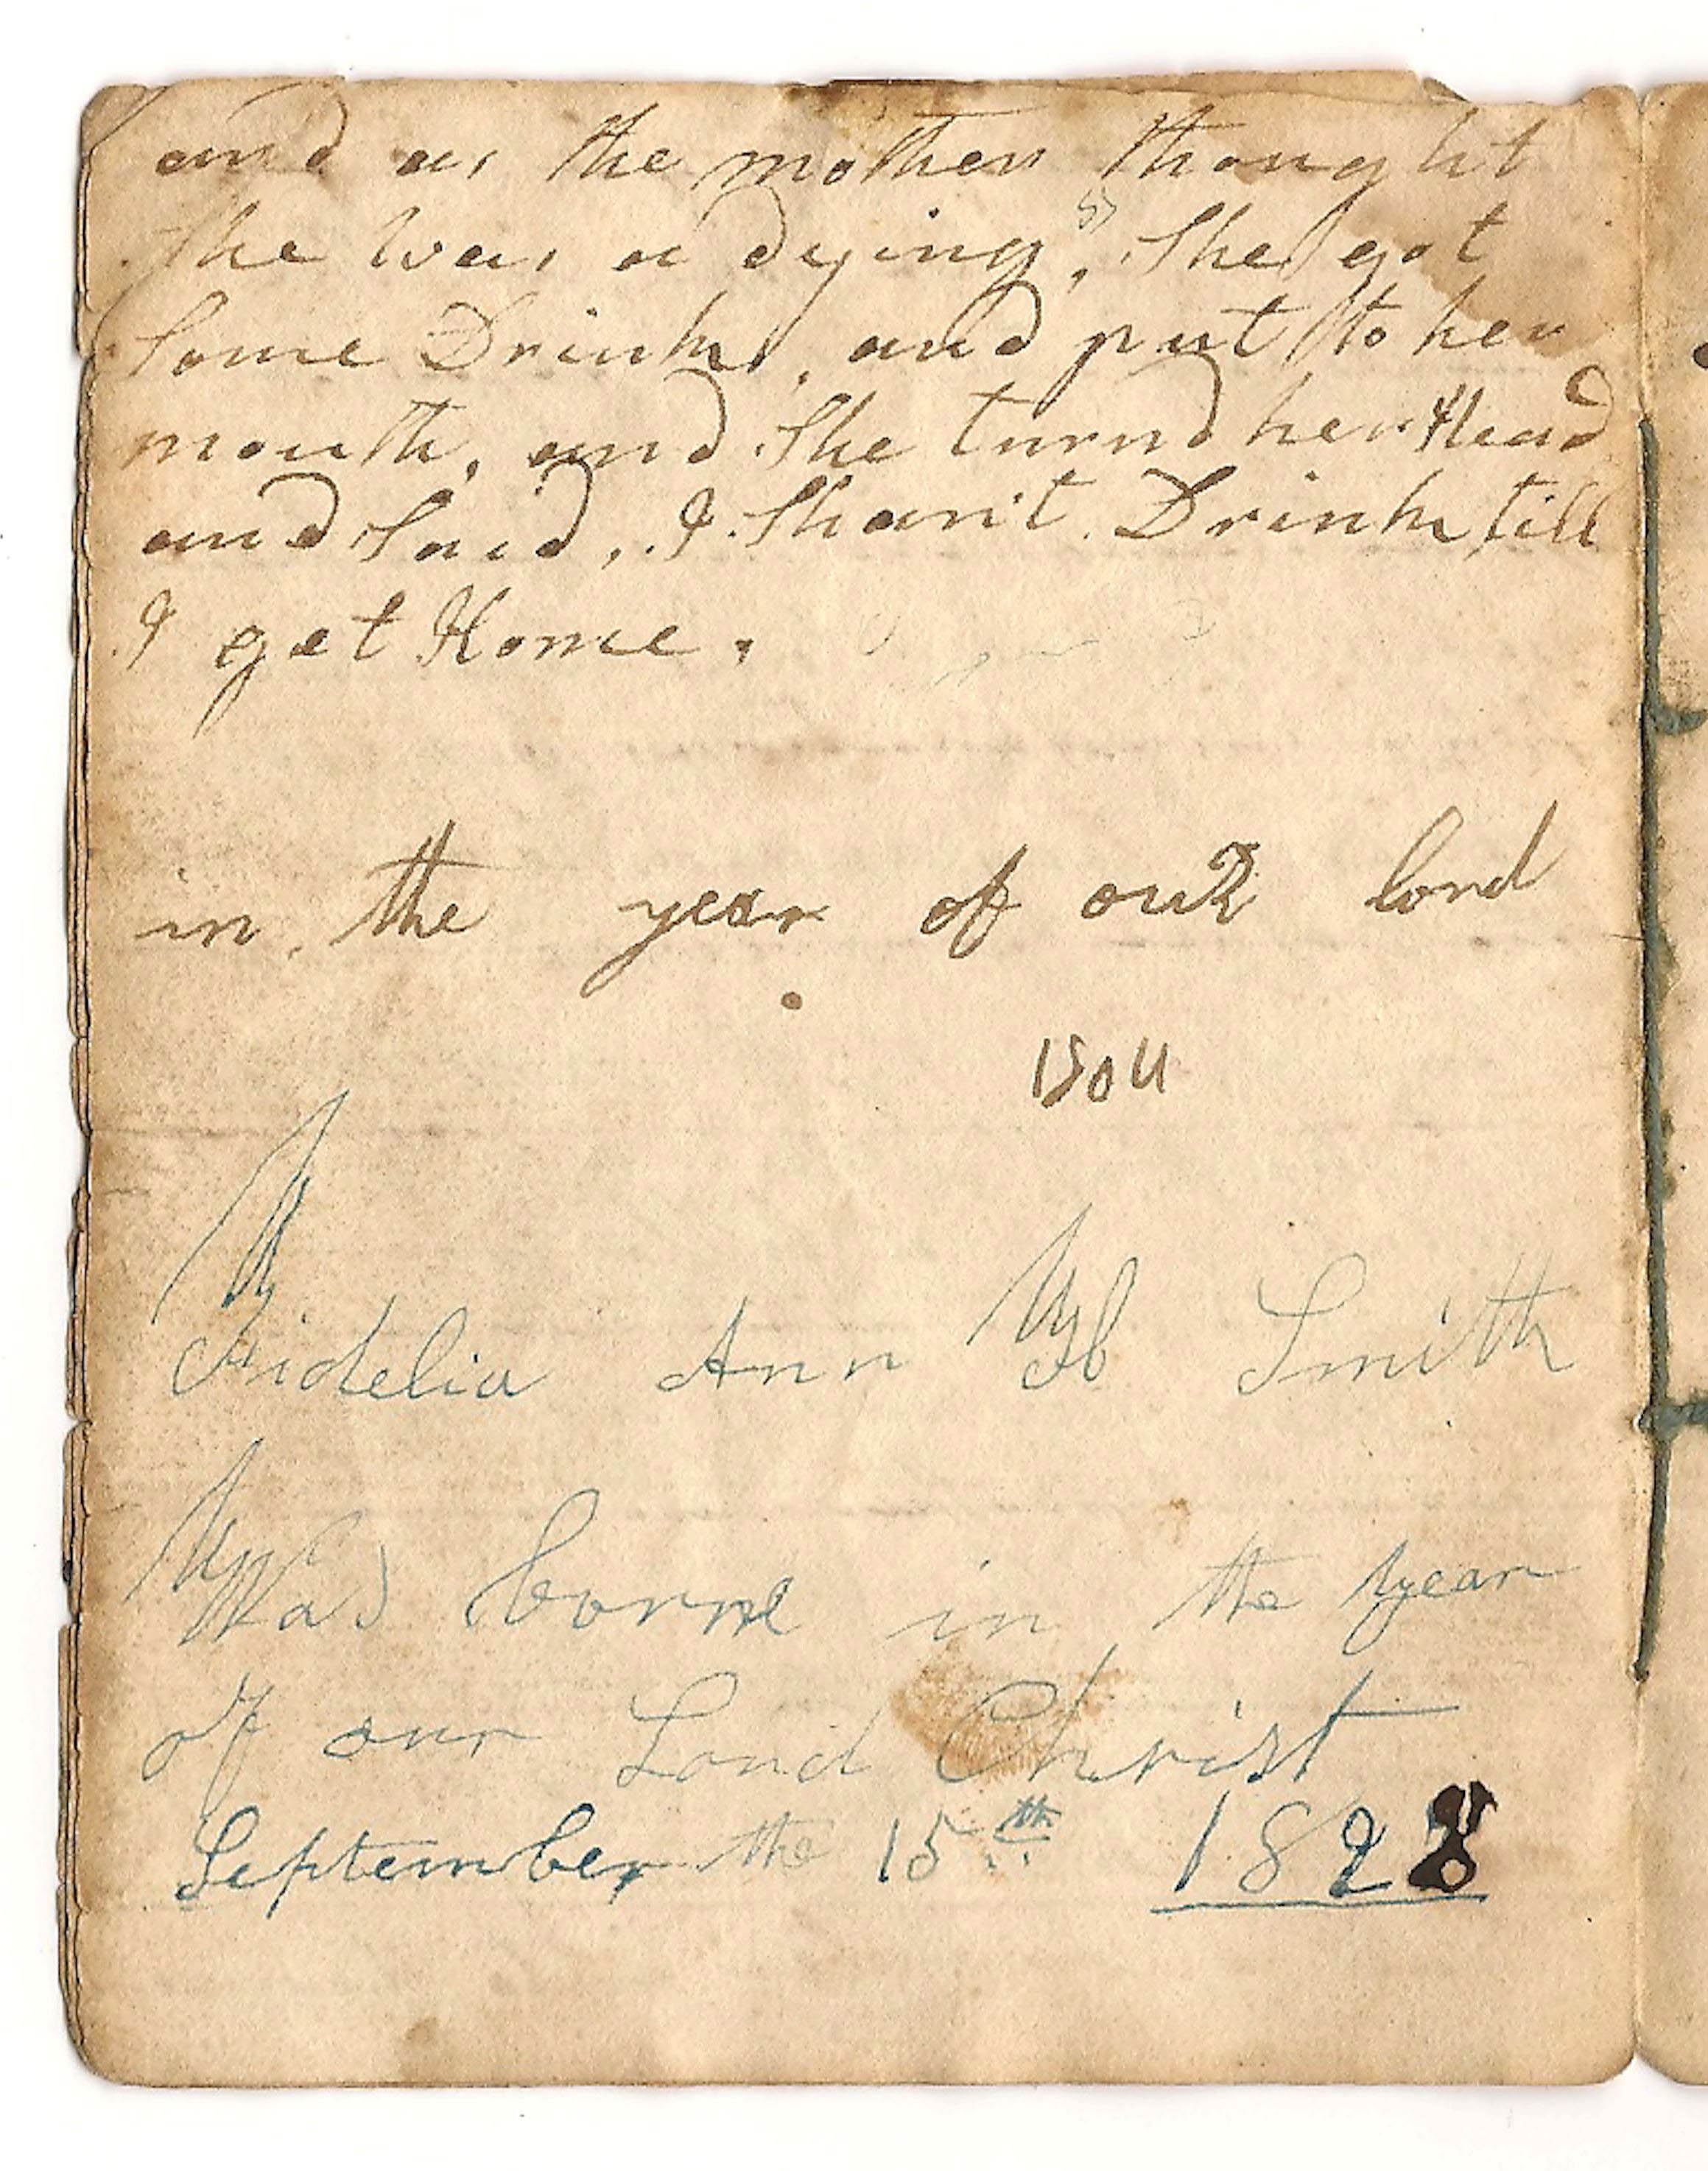 and as the mother thought
she was a dying, She got
Some Drink, and put to her
mouth, and She turnd her Head
and Said, I Shan't Drink till
I get Home.
in the year of our lord
Fidelia Ann H Smith
Was borne in the year
of our Lord Christ
September the 15th 1828